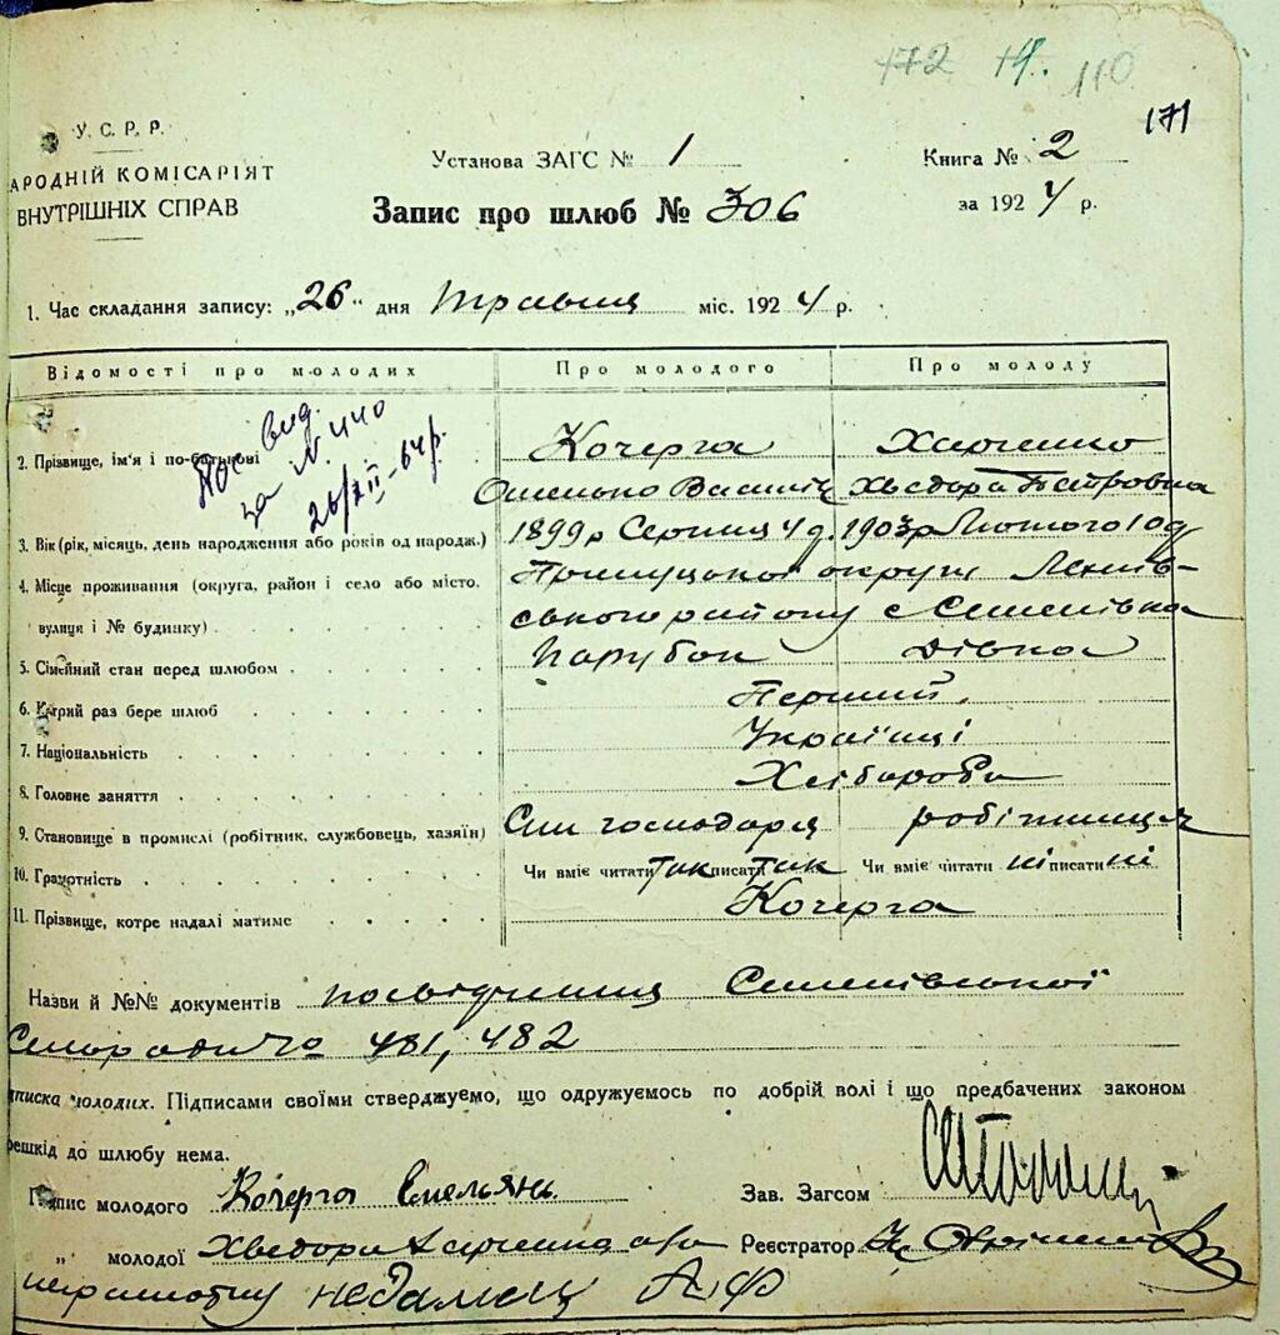 172 14. 110
171
У. С. Р. Р.
АРОДНІЙ КОМІСАРІЯТ
ВНУТРІШНІХ СПРАВ
Установа ЗАГС № 1
Книга № 2
Запис про шлюб № 306
за 1924 р.
1. Час складання запису: „26“ дня Травня міс. 1924 р.
Відомості про молодих Про молодого Про молоду
Пос вид.
за N 440
26/XII-64р.
2. Прізвище, ім'я і по-батькові Кочерга Харченко
Омелько Василів Хведора Петровна
3. Вік (рік, місяць, день народження або років од народж.) 1899р Серпня 4 д. 1903р Лютого 10д
4. Місце проживання (округа, район і село або місто, Прилуцької округи
вулиця і № будинку) ського району с Семенівка
5. Сімейний стан перед шлюбом Парубок дівка
6. Котрий раз бере шлюб Перший
7. Національність Українці
8. Головне заняття Хліборобе
9. Становище в промислі (робітник, службовець, хазяїн) Син господаря робітниця
10. Грамотність Чи вміє читати так писати так Чи вміє читати ні писати ні
11. Прізвище, котре надалі матиме Кочерга
Назви й №№ документів посвідчення Семенівської
Сільради № 481, 482
писка молодих. Підписами своїми стверджуємо, що одружуємось по добрій волі і що предбачених законом
решкід до шлюбу нема.
Підпис молодого Кочерга Емельянь Зав. Загсом
„ молодої Хведора Харченко а за Реєстратор
неграмотну